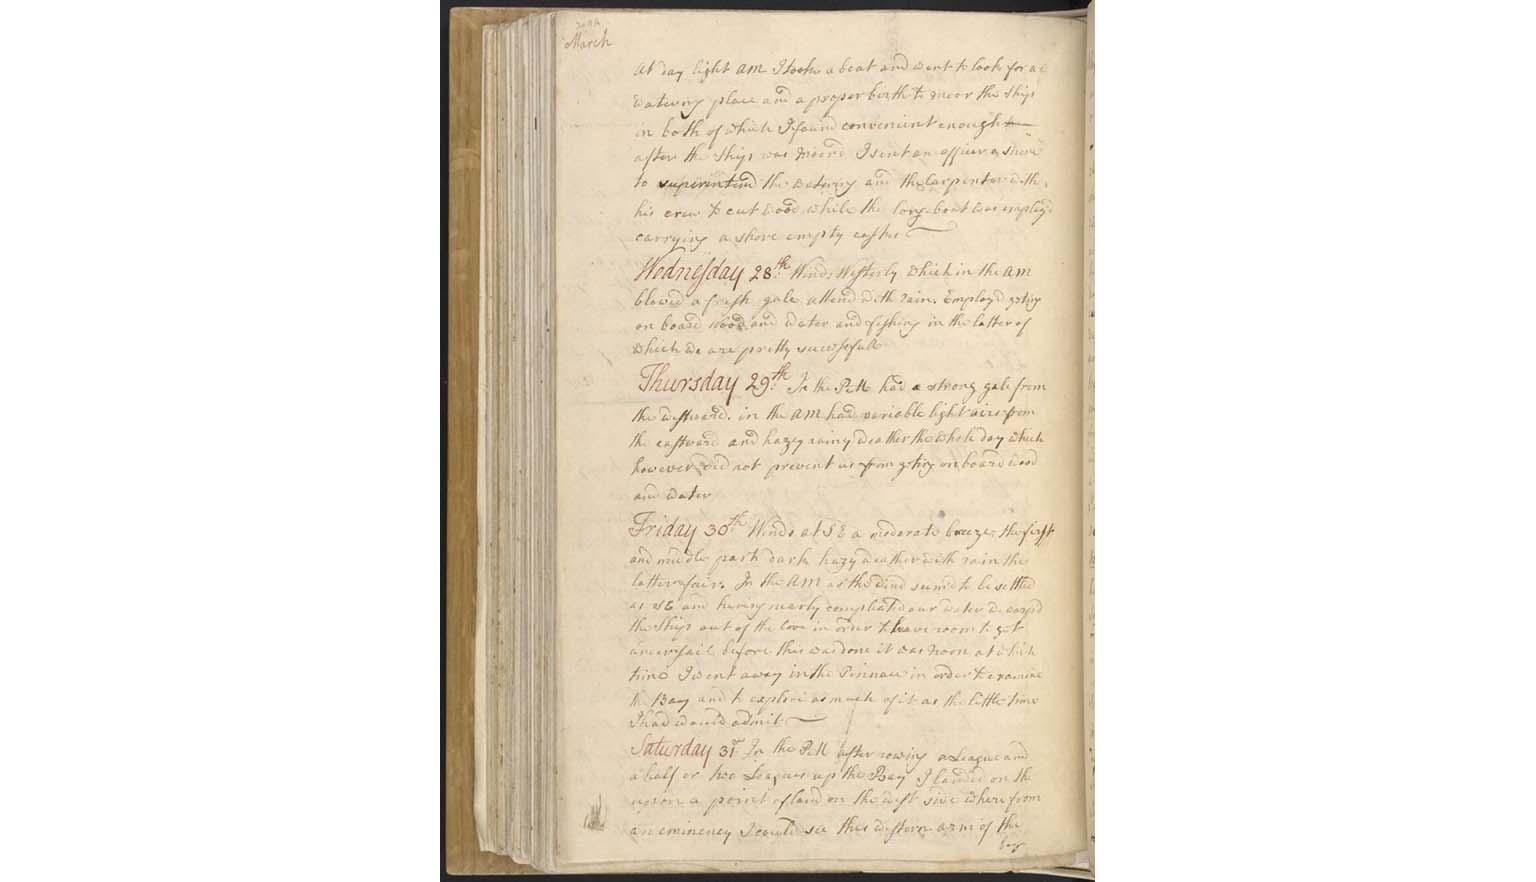 March
At day light AM I took a boat and went to look for a
Watering place and a proper birth to moor the Ship
in both of which I found convenient enough
after the Ship was Moor'd I sent an officer a Shore
to superintend the Watering and the Carpenter with
his crew to cut Wood while the long-boat was employ'd
carrying a shore empty casks
Wednesday 28th Winds Westerly which in the AM
blowed a fresh gale attend with rain. Employ'd geting
on board Wood and Water and fishing in the latter of
which we are pretty successfull
Thursday 29th In the PM had a strong gale from
the westward. in the AM had variable light airs from
the eastward and hazey rainy weather the whole day which
however did not prevent us from geting on board wood
and water
Friday 30th Winds at SE a moderate breeze, the first
and middle part dark hazy weather with rain the
latter fair. In the AM as the wind seem'd to be settled
at SE and having nearly compleated our water we warp'd
the Ship out of the Cove in order to have room to get
under sail before this was done it was Noon at which
time I went away in the Pinnace in order to examine
the Bay and to explore as much of it as the little time
I had would admit
Saturday 31st In the PM after rowing a League and
a half or two Leagues up the Bay I landed on the
upon a point of land on the west side where from
an eminency I could see this western arm of the
bay